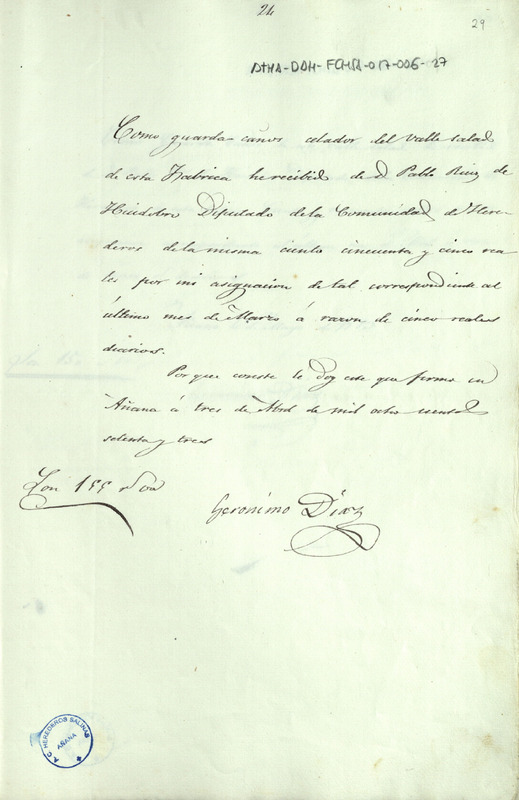 24
29
ATHA-DAH-FCHSA-017-006-27
Como guarda-caños celador del Valle salado
de esta Fabrica he recibido de D. Pablo Ruiz de
Huidobro Diputado de la Comunidad de Here-
deros de la misma ciento cincuenta y cinco rea
les por mi asignacion de tal correspondiente al
último mes de Marzo á razon de cinco reales
diarios.
Por que conste le doy este que firmo en
Añana á tres de Abril de mil ocho cientos
setenta y tres
Son 155 rs
Geronimo Díaz
A.C. HEREDEROS SALINAS
AÑANA